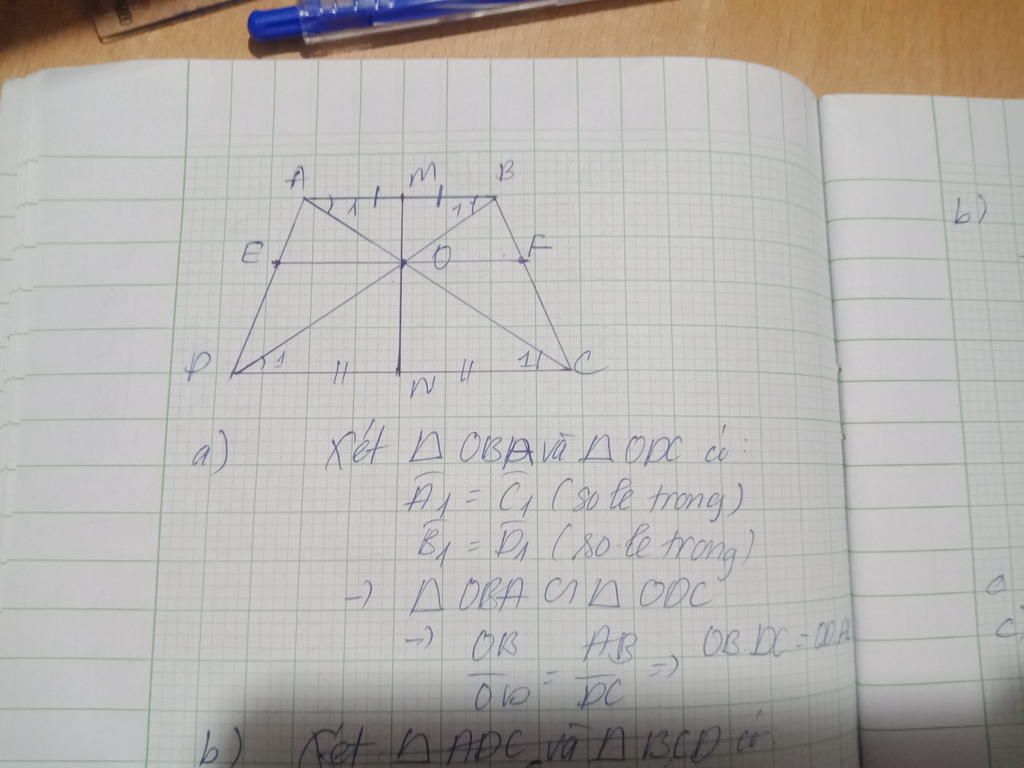 A M B
1 1
E O F
D 1 1 C
N
b)
a) Xét △ OBA và △ ODC có:
A1 = C1 (so le trong)
B1 = D1 (so le trong)
→ △ OBA ∽ △ ODC
→ OB/OD = AB/DC => OB.DC = OD.A
b) Xét △ ADC và △ BCD có: